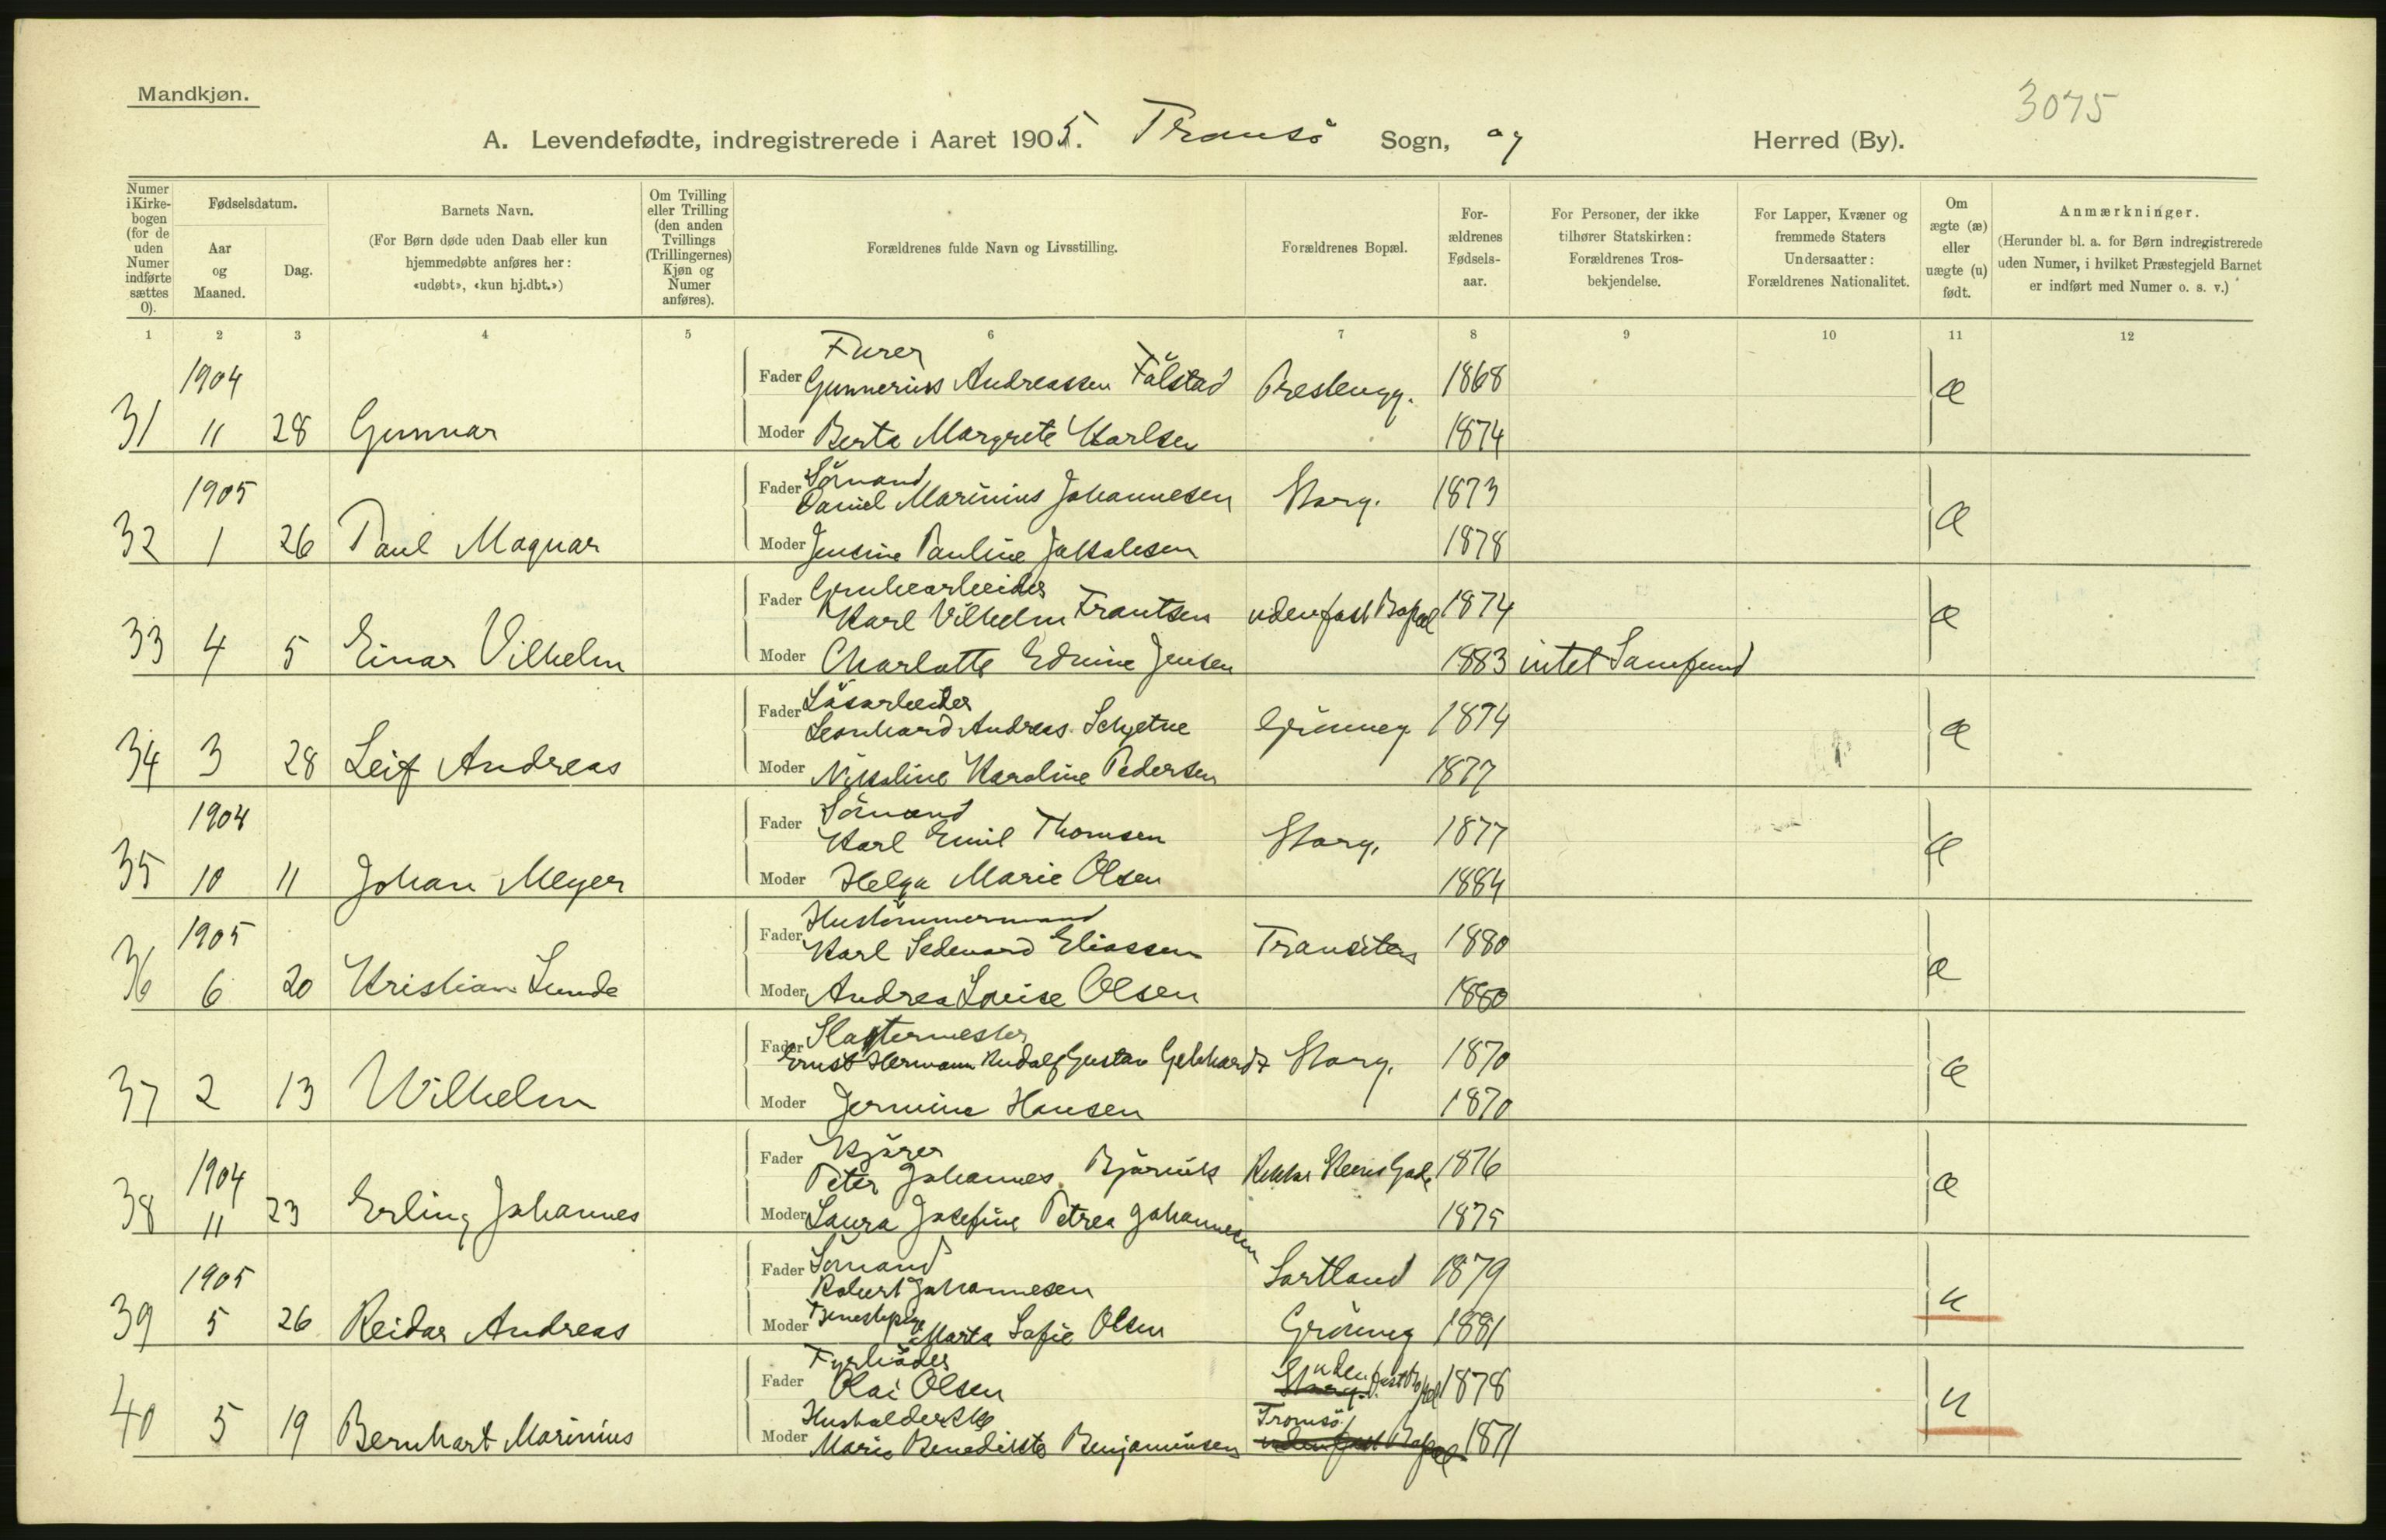 Mandkjøn.
3075
A. Levendefødte, indregistrerede i Aaret 1905. Tromsö Sogn, og Herred (By).
Numer i Kirke-bogen (for de uden Numer indførte sættes 0).
Fødselsdatum.
Aar og Maaned.
Dag.
Barnets Navn.
(For Børn døde uden Daab eller kun hjemmedøbte anføres her: «udøbt», «kun hj.dbt.»)
Om Tvilling eller Trilling (den anden Tvillings (Trillingernes) Kjøn og Numer anføres).
Forældrenes fulde Navn og Livsstilling.
Forældrenes Bopæl.
For-ældrenes Fødsels-aar.
For Personer, der ikke tilhører Statskirken: Forældrenes Tros-bekjendelse.
For Lapper, Kvæner og fremmede Staters Undersaatter: Forældrenes Nationalitet.
Om ægte (æ) eller uægte (u) født.
Anmærkninger.
(Herunder bl. a. for Børn indregistrerede uden Numer, i hvilket Præstegjeld Barnet er indført med Numer o. s. v.)
1 2 3 4 5 6 7 8 9 10 11 12
Furer
1904 Fader Gunnerius Andreassen Fålstad Prestengg. 1868 æ
31 11 28 Gunnar Moder Berta Margrete Karlsen 1874
Sömand
1905 Fader Daniel Marinius Johannesen Storg. 1873 æ
32 1 26 Paul Magnar Moder Jensine Pauline Jakobsen 1878
Grubearbeider
Fader Karl Vilhelm Frantsen uden fast Bopæl 1874 æ
33 4 5 Einar Vilhelm Moder Charlotte Edvine Jensen 1883 intet Samfund
Lösarbeider
Fader Leonhard Andreas Schjetne Grönneg. 1874 æ
34 3 28 Leif Andreas Moder Nikoline Karoline Pedersen 1877
Sömand
1904 Fader Karl Emil Thomsen Storg. 1877 æ
35 10 11 Johan Meyer Moder Helga Marie Olsen 1884
Hustömmermand
1905 Fader Karl Sedevard Eliassen 1880 æ
36 6 20 Kristian Lunde Moder Andrea Lovise Olsen 1880
Slagtermester
Fader Ernst Hermann Rudolf Gustav Gebhardt Storg. 1870 æ
37 2 13 Wilhelm Moder Jermine Hansen 1870
Kjörer
1904 Fader Peter Johannes Bjørnvik Rektor Steens Gade 1876 æ
38 11 23 Erling Johannes Moder Laura Josefine Petrea Johannesen 1875
Sömand
1905 Fader Robert Johannesen Sortland 1879 u
39 5 26 Reidar Andreas Moder Tjenestepige Marta Sofie Olsen Grönneg 1881
Fyrböder
Fader Olai Olsen Storg. uden fast Bopæl 1878 u
Husholderske Tromsö
40 5 19 Bernhart Marinius Moder Marie Benedikte Benjaminsen uden fast Bopæl 1871